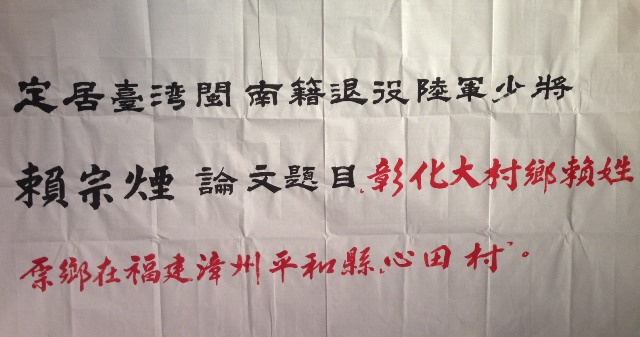 定居臺湾閩南籍退役陸軍少將
賴宗煙 論文題目、彰化大村鄉賴姓
原鄉在福建漳州平和縣、心田村”。